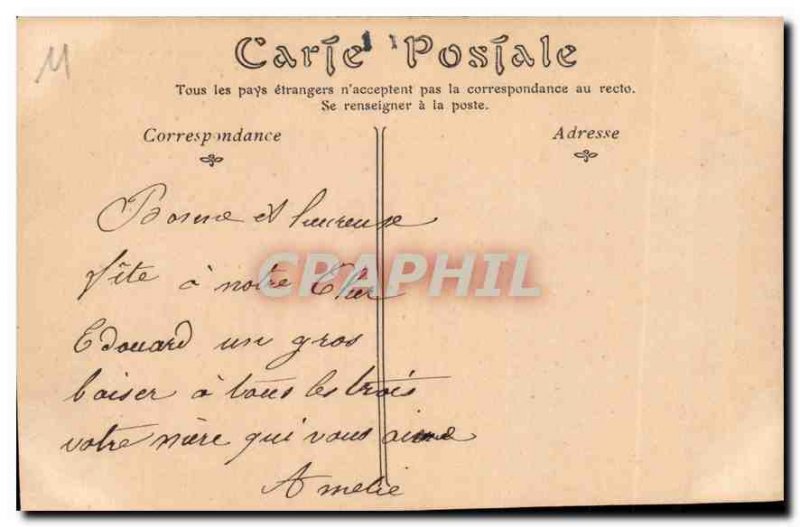 M
Carte Postale
Tous les pays étrangers n'acceptent pas la correspondance au recto.
Se renseigner à la poste.
Correspondance
Adresse
Bonne et heureuse
fête à notre Cher
CRAPHIL
Edouard un gros
baiser à tous les trois
votre mère qui vous aime
Amelie